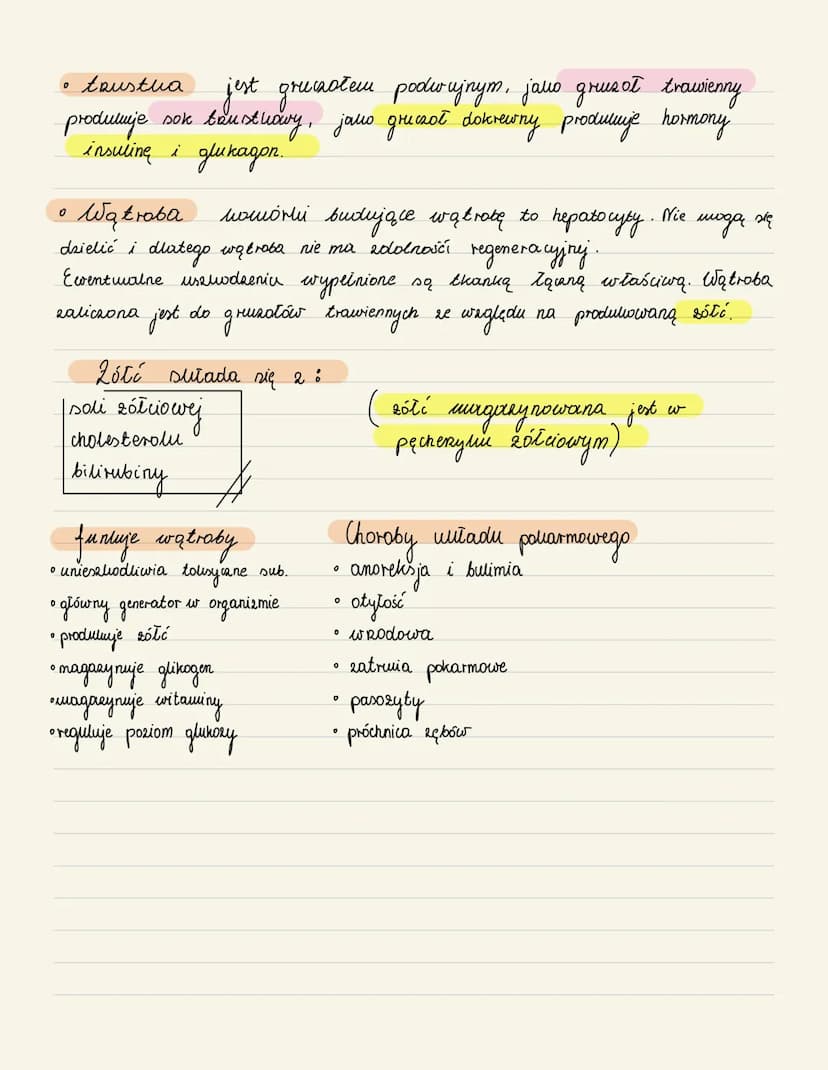 • trzustka jest gruczołem podwujnym, jako gruczoł trawienny
produkuje sok trzustkowy, jako gruczoł dokrewny produkuje hormony
insulinę i glukagon.
• Wątroba komórki budujące wątrobę to hepatocyty. Nie mogą się
dzielić i dlatego wątroba nie ma zdolności regeneracyjnej.
Ewentualne uszkodzenia wypełnione są tkanką łączną właściwą. Wątroba
zaliczona jest do gruczołów trawiennych ze względu na produkowaną żółć.
Żółć składa się z:
soli żółciowej
cholesterolu
bilirubiny
(żółć magazynowana jest w
pęcherzyku żółciowym)
funkcje wątroby
• unieszkodliwia toksyczne sub.
• główny generator w organizmie
• produkuje żółć
• magazynuje glikogen
• magazynuje witaminy
• reguluje poziom glukozy
Choroby układu pokarmowego
• anoreksja i bulimia
• otyłość
• wrzodowa
• zatrucia pokarmowe
• pasożyty
• próchnica zębów